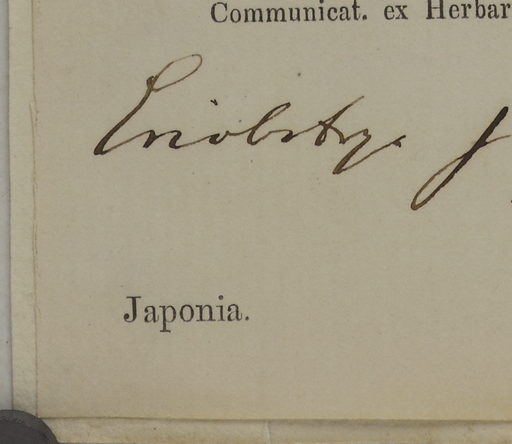 Communicat. ex Herbar
Eriobotrya J
Japonia.